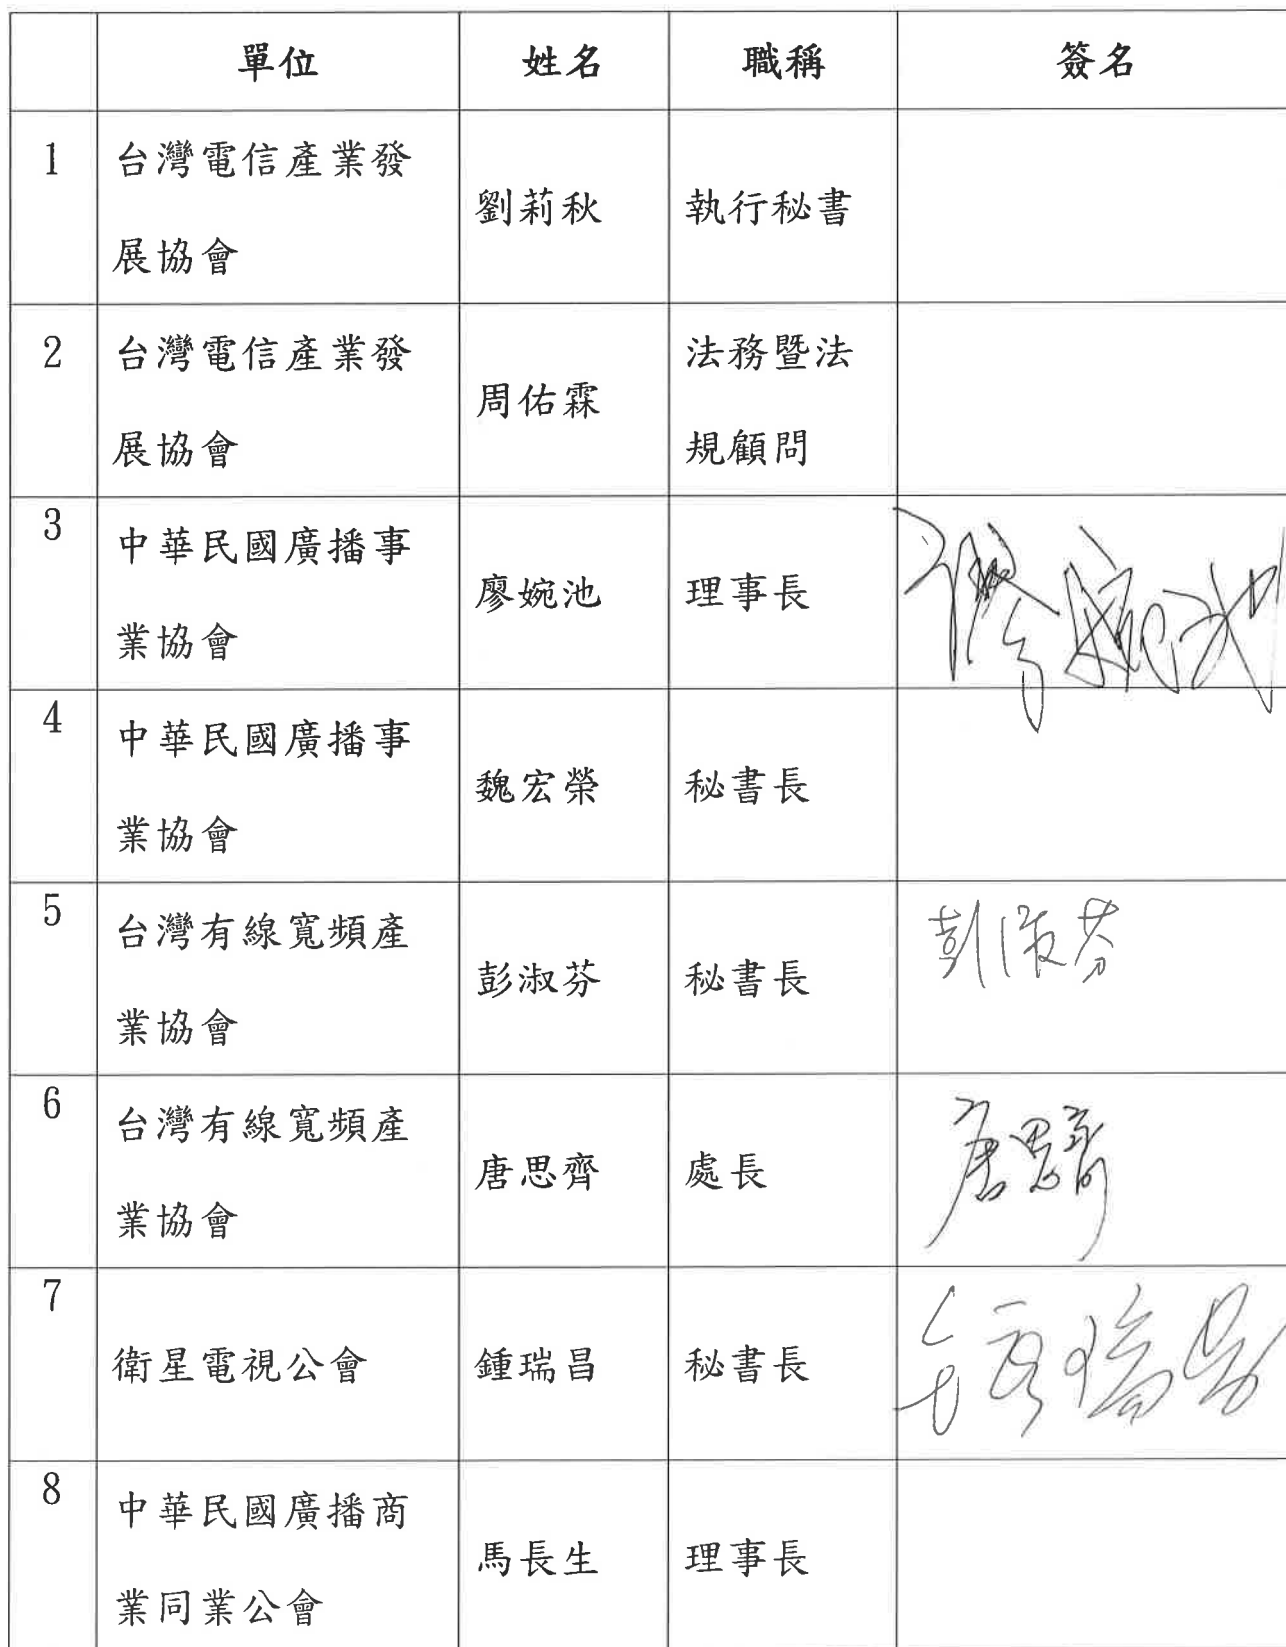 單位 姓名 職稱 簽名
1 台灣電信產業發
展協會 劉莉秋 執行秘書
2 台灣電信產業發
展協會 周佑霖 法務暨法
規顧問
3 中華民國廣播事
業協會 廖婉池 理事長
4 中華民國廣播事
業協會 魏宏榮 秘書長
5 台灣有線寬頻產
業協會 彭淑芬 秘書長 彭淑芬
6 台灣有線寬頻產
業協會 唐思齊 處長 唐思齊
7 衛星電視公會 鍾瑞昌 秘書長
8 中華民國廣播商
業同業公會 馬長生 理事長